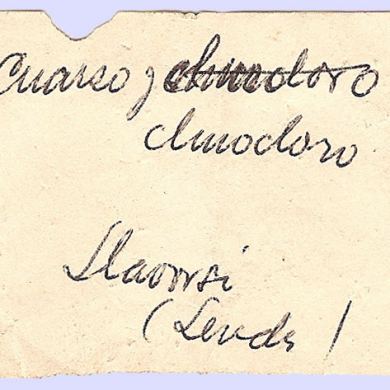 Cuarso y
clinocloro
Llavorsi
(Lerida)